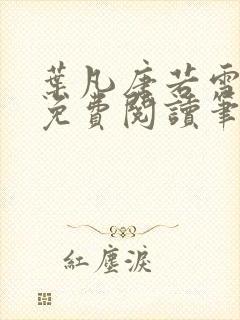 葉凡唐若雪
免費閱讀筆
紅塵淚